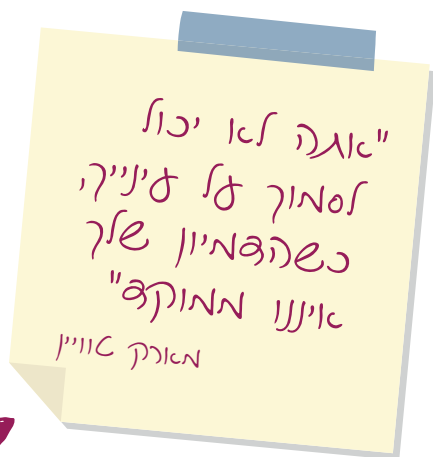 "אתה לא יכול
לסמוך על עינייך,
כשהדמיון שלך
איננו ממוקד"
מארק טוויין